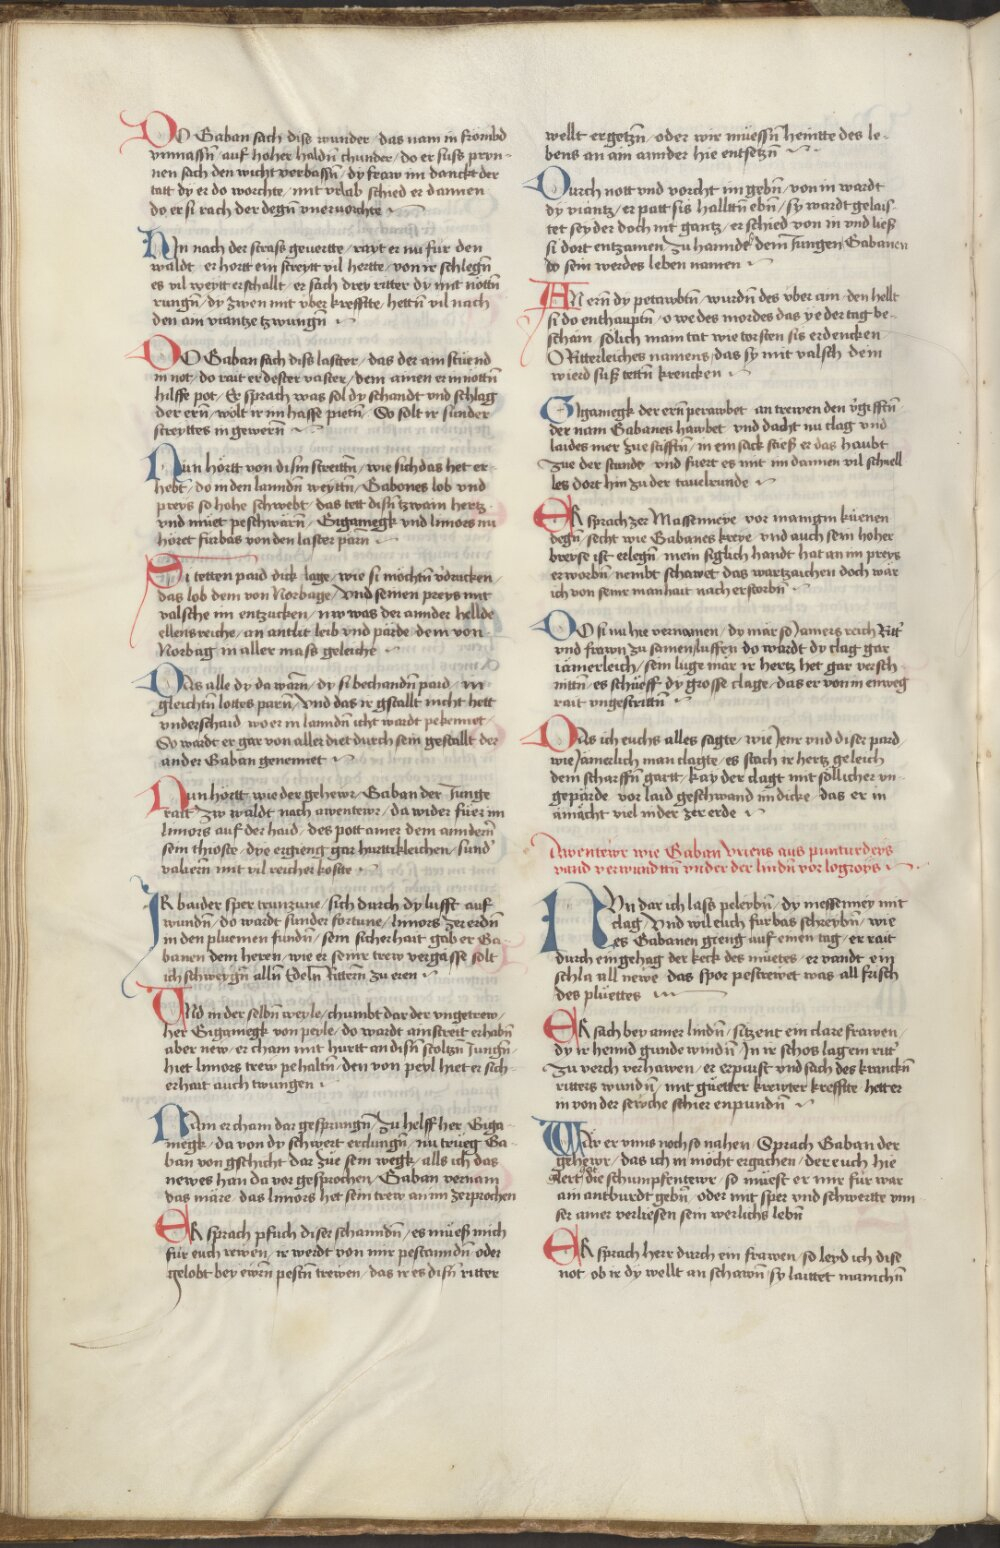 DO Gaban sach dise wunder / das nam in frömbd
vnmassñ / auf hoher haldñ chunder / do er suss prun-
nen sach den wicht verbassñ / dy fraw im danckt der
tatt dy er do worchte / mit vrlab schied er dannen
do er si rach der degñ vneruorchte
HIn nach der strass geuertte / rayt er nu fur den
waldt er hortt ein streytt vil hertte / von ir schlegñ
es vil weytt erschallt / er sach drey ritter dy mit nöttñ
rungñ / dy zwen mit vber kreffte / hettñ vil nach
den ain viantze tzwungñ
DO Gaban sach dise laster / das der ain stuend
in not / do rait er dester vaster / dem ainen er in nöttñ
hilffe pot / Er sprach was sol dy schandt vnd schlag
der ern / wölt ir im hasse pietñ / So solt ir sunder
streyttes in gewern
Nun hörtt von disñ streittñ / wie sich das het er-
hebt / do in den lanndñ weyttñ / Gabones lob vnd
preys so hohe schwebt / das tett disñ tzwain hertz
vnd müet peschwärñ / Gigamegk vnd limors nu
höret fürbas von den laster parñ
Si tetten paid dick lage / wie si möchtñ v'drucken
das lob dem von Norbage / vnd seinen preys mit
valsche im entzucken / nw was der annder hellde
ellensreiche / an antlit leib vnd pärde dem von
Norbag in aller mass geleiche
DAs alle dy da warñ / dy si bechandñ paid / in
gleichtñ lottes parñ / vnd das ir gstallt nicht hett
vnderschaid wo er in lanndñ icht wardt pekennet /
So wardt er gar von aller diet durch sein gestallt der
ander Gaban genennet
Nun hörtt wie der gehewr / Gaban der Junge
raitt zw waldt nach awentewr / da wider füer im
limors auf der haid / des pott ainer dem anndern
sein thioste / dye ergieng gar hurttikleichen / sund'
valierñ mit vil reicher koste
IR baider sper trunzune / sich durch dy lufft auf
wundñ / do wardt sunder fortune / limors zer erdñ
in den pluemen fundñ / sein sicherhait gab er Ga-
banen dem heren / wie er seinr trew vergässe solt
ich schweygñ allñ Edelñ Rittern zu eren
Vnd in der selbñ weyle / chumbt dar der vngetrew /
her Gigamegk von peyle / do wardt ain streit erhabñ
aber new / er cham mit hurtt an disñ stoltzñ Jungñ /
hiet limors trew pehaltñ / den von peyl hiet er sich-
erhait auch twungen
NAin er cham dar gesprungñ / zu helff her Giga-
megk / da von dy schwert erclungñ / nu trüeg Ga-
ban von gschicht dar züe sein wegk / alls ich das
new es han da vor gesprochen / Gaban vernam
das märe / das limors het sein trew an im zerprochen
ER sprach pfuch diser schanndñ / es müess mich
für euch rewen / ir werdt von mir pestanndñ oder
gelobt bey ewrñ pestñ trewen / das ir es disñ ritter
wellt ergetzñ / oder wir müessñ heintte des le-
bens an ain annder hie entsetzñ
Durch nott vnd vorcht im gebñ / von in wardt
dy viantz / er patt sis halltñ ebñ / sy wardt gelais-
tet seyder doch nit gantz / er schied von in vnd liess
si dort entzamen / zu hanndt dem Jungen Gabanen
do sein werdes leben namen
AN ern dy petawbtñ / wurdñ des vber ain / den hellt
si do enthauptñ / o we des mordes das ye der tag be-
schain / sölich main tat wie torsten sis erdencken /
O Ritterleiches namens / das sy mit valsch dem
wierd suss tettñ krencken
Gigamegk der ern perawbet an trewen den v'gifftñ
der nam Gabanes hawbet vnd dacht nu clag vnd
laides mer züe stifftñ / in ein sack stiess er das haubt
zue der stunde vnd fuert es mit im dannen vil schnell
les dort hin zu der tauelrunde
ER sprach zer Massenneye vor manigm küenen
degñ / secht wie Gabanes kreye vnd auch sein hoher
breyse ist erlegñ / mein siglich handt hat an im preys
erworbñ / nembt schawet das wartzaichen doch wär
ich von seinr manhait nach erstorbñ
DO si nu hie vernamen / dy mär so Jamers reich Ritt'
vnd frawñ zu samen / luffen do wardt dy clag gar
iämerleich / sein luge mär ir hertz het gar versch-
nittñ / es schüeff dy grosse clage / das er von in enweg
rait vngestrittñ
DAs ich euchs alles sagte / wie Jenr vnd diser pard /
wie Jämerlich man clagte / es stach ir hertz geleich
dem scharffñ gartt / kay der clagt mit söllicher vn-
gepärde / vor laid geschwand im dicke / das er in
amacht viel nider zer erde
Awentewr wie Gaban vriens aus punturdeys
vand verwundttñ vnder der lindñ vor logroys
NVn dar ich lass peleybñ / dy messenney mit
clag / vnd wil euch furbas schreybñ / wie
es Gabanen gieng auf einen tag / er rait
durch ein gehag der keck des müetes / er vandt ein
schla all newe / das spor pestrewet was all frisch
des pluettes
ER sach bey ainer lindñ / sitzent ein clare frawen /
dy ir hemd gunde windñ / In ir schos lag ein ritt'
zu verch verhawen / er erpaist vnd sach des kranckñ
ritters wundñ / mit güetter krewter kreffte hett er
in von der seyche schier enpundñ
Wär er vnns noch so nahen / Sprach Gaban der
gehewr / das ich in möcht ergachen / der euch hie
kert die schumpfentewr / so müest er mir für war
ain antburdt gebñ / oder mit sper vnd schwertte vnn-
ser ainer verliesen sein werlichs lebñ
ER sprach herr durch ein frawen / so leyd ich dise
not ob ir dy wellt an schawñ / sy laittet manichñ